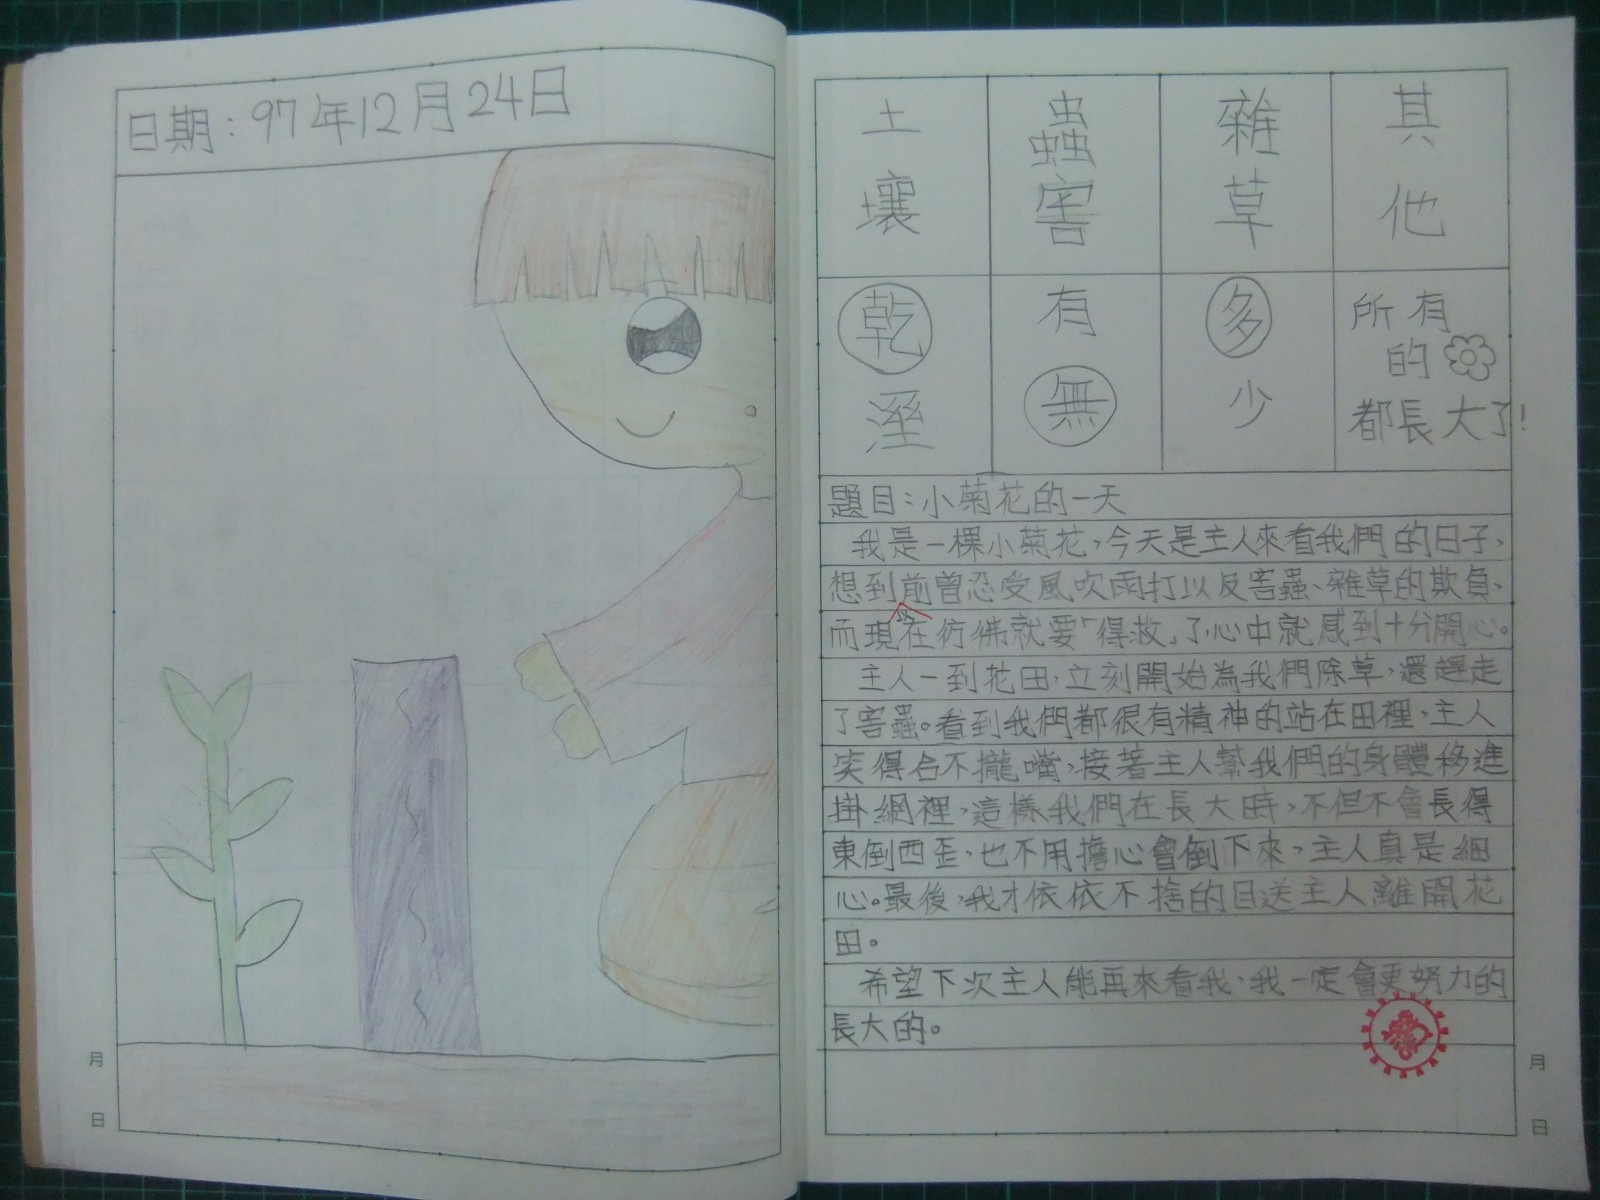 日期：97年12月24日
土壤 蟲害 雜草 其他
乾 有 多 所有
溼 無 少 的
都長大了!
題目：小菊花的一天
我是一棵小菊花，今天是主人來看我們的日子，
想到前曾忍受風吹雨打以及害蟲、雜草的欺負，
而現在彷彿就要「得救」了，心中就感到十分開心。
主人一到花田，立刻開始為我們除草，還趕走
了害蟲。看到我們都很有精神的站在田裡，主人
笑得合不攏嘴，接著主人幫我們的身體移進
掛網裡，這樣我們在長大時，不但不會長得
東倒西歪，也不用擔心會倒下來，主人真是細
心。最後，我才依依不捨的目送主人離開花
田。
希望下次主人能再來看我，我一定會更努力的
長大的。
月
日
月
日